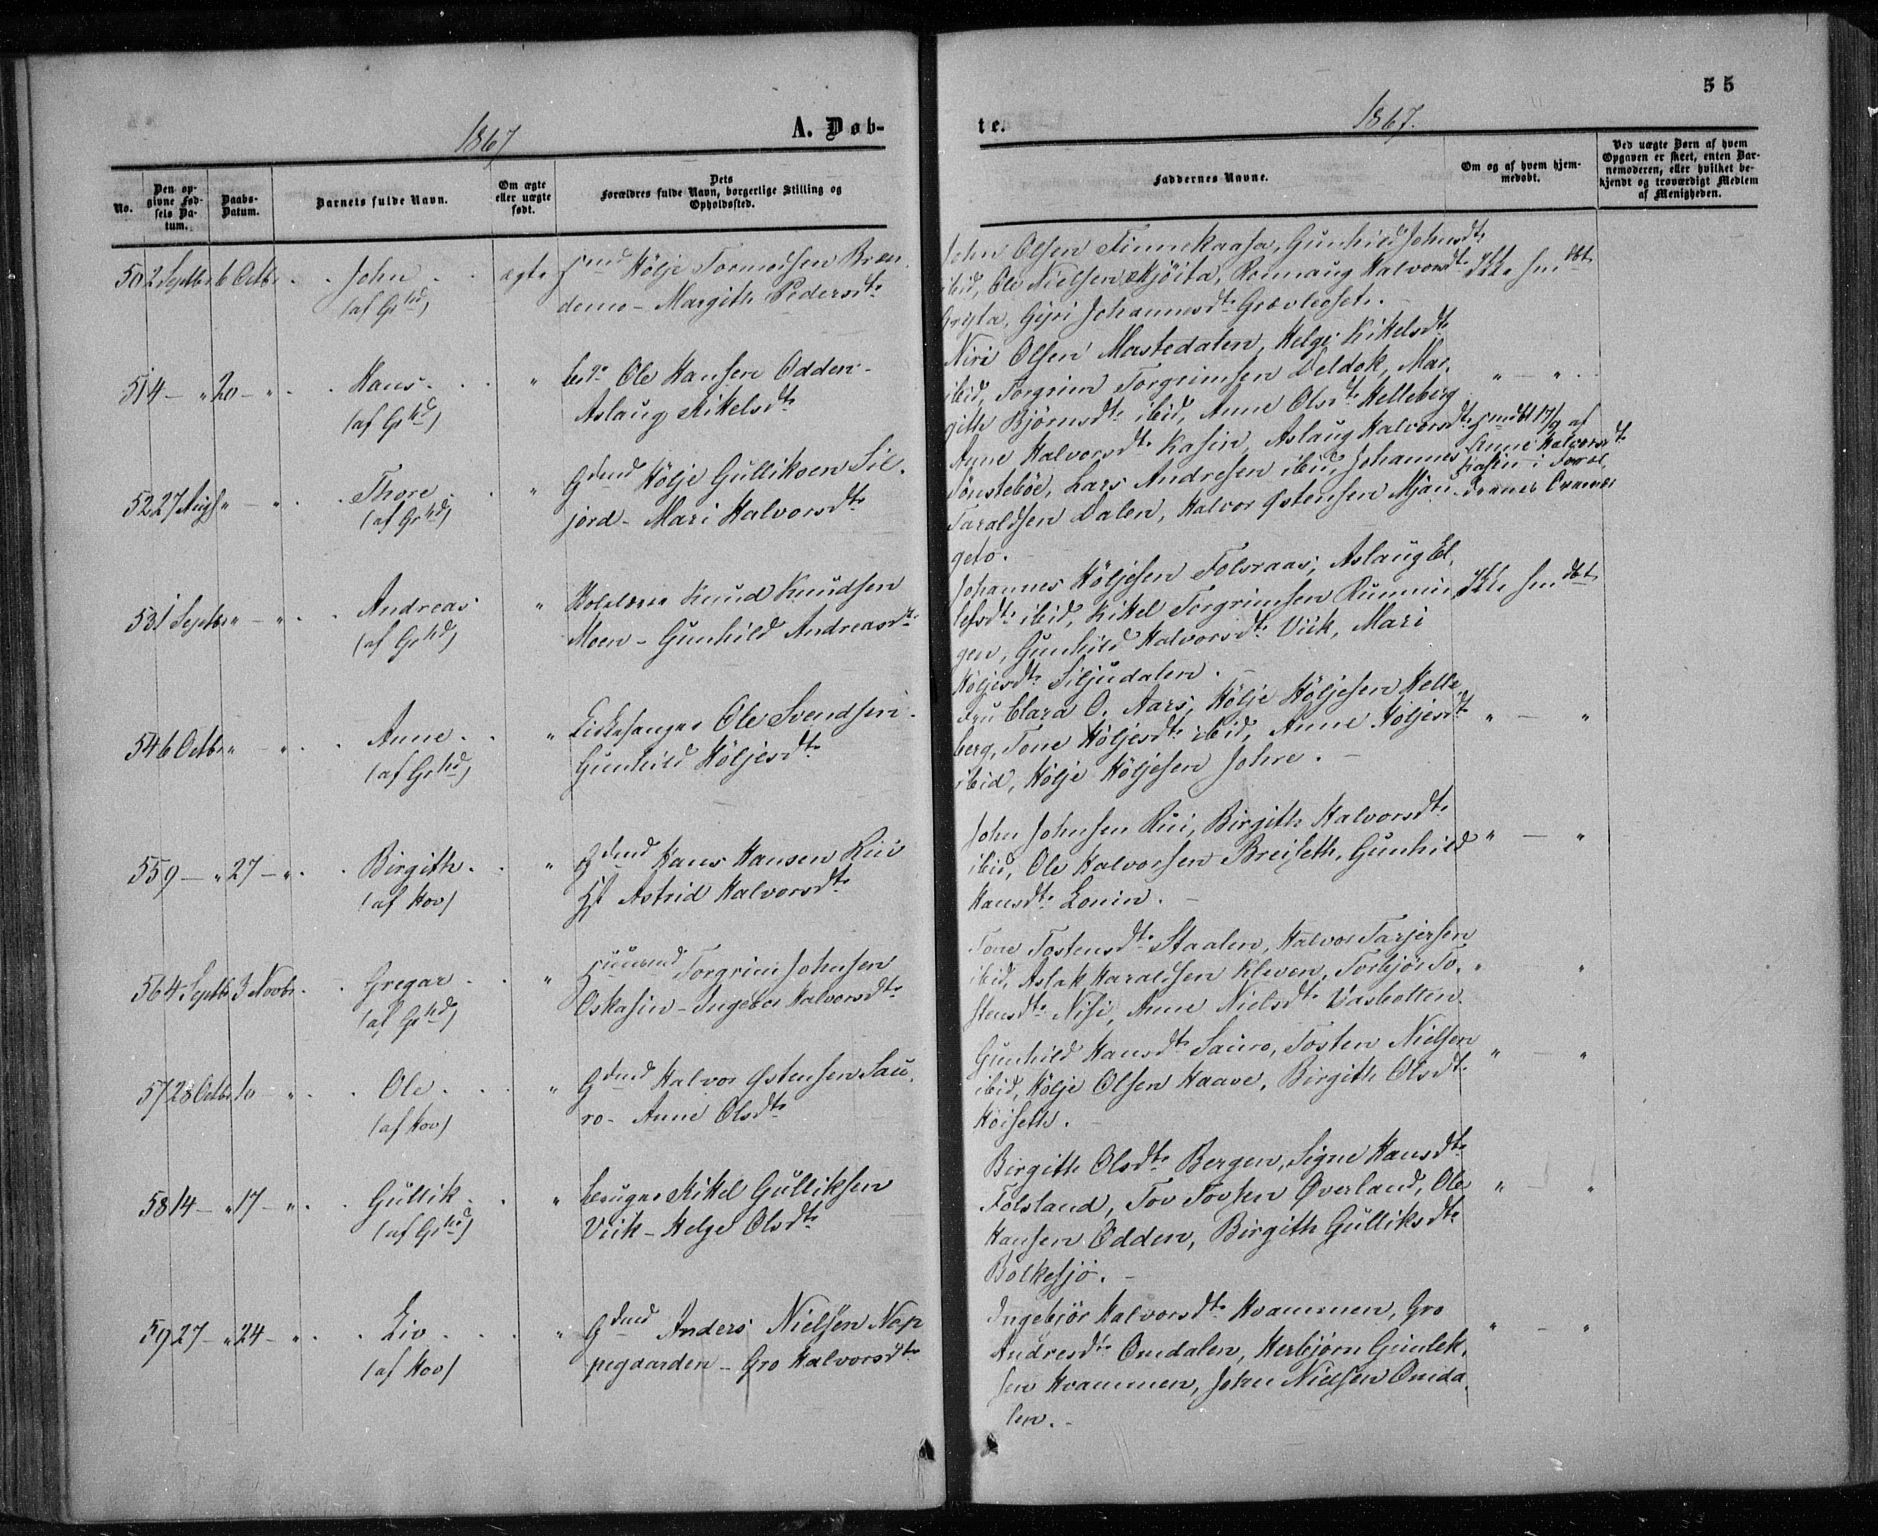 55
1867
A. Døb-
te.
1867.
No.
Den op-
givne Fød-
sels Da-
tum.
Daabs-
Datum.
Barnets fulde Navn.
Om ægte
eller uægte
født.
Dets
Forældres fulde Navn, borgerlige Stilling og
Opholdssted.
Faddernes Navne.
Om og af hvem hjem-
medøbt.
Ved uægte Børn af hvem
Opgaven er skeet, enten Bar-
nemoderen, eller hvilket be-
kjendt og troværdigt Medlem
af Menigheden.
50 2 Septbr 6 Octbr John
(af Grhd)
ægte Hølje Tormodsen Bræn
demo - Margith Pedersdtr
John Olsen Finnekaasa, Gunhild Johnsdtr
ibid, Ole Nielsen Skjöita, Rønnaug Halvorsdtr
Grysta, Gjøri Johannesdtr Grøvleset. -
Ikke hmdbt
51 4 - " 20 - " Hans
(af Grhd)
" Ole Hansen Odden -
Aslaug Kikelsdtr
Niri Olsen Mastedalen, Helge Kikelsdtr
ibid, Torgrim Torgrimsen Deldok, Mar-
githe Bjørnsdtr ibid, Anne Olsdtr Helleberg
" - "
52 27 Augs " - " Thore
(af Grhd)
" Gdmd Hølje Gulliksen Sil-
jord - Mari Halvorsdtr
Anne Halvorsdtr Kasin, Aslaug Halvorsdtr
Tønstebøe, Lars Andresen ibid, Johannes
Taraldsen Dalen, Halvor Østensen Mjau-
geto.
hmdbt 17/9 af
Anne Halvorsdtr
Kasin i
53 1 Septbr " - " Andreas
(af Grhd)
" Knud Knudsen
Moen - Gunhild Andreasdtr
Johannes Høljesen Folsraas, Aslaug El-
lefsdtr ibid, Kikel Torgrimsen Runnin-
gen, Gunhild Halvorsdtr Viik, Mari
Høljesdtr Siljudalen.
Ikke hmdbt
54 6 Octbr " - " Anne
(af Grhd)
" Kirkesanger Ole Svendsen -
Gunhild Høljesdtr
Fru Clara O. Aars, Hølje Høljesen Helle-
berg, Tone Høljesdtr ibid, Anne Høljesdtr
ibid, Hølje Høljesen Johre. -
" - "
55 9 - " 27 - " Birgith
(af Hov)
" Gdmd Hans Hansen Rui
Hst Astrid Halvorsdtr
John Johnsen Rui, Birgith Halvorsdtr
ibid, Ole Halvorsen Breiseth, Gunhild
Hansdtr Lonin. -
" - "
56 4 Septbr 3 Novbr Gregar
(af Grhd)
" Huusmd Torgrim Johnsen
Oskasin - Ingebor Halvorsdtr
Tone Tostensdtr Staalen, Halvor Tarjersen
ibid, Aslak Haraldsen Kleven, Torbjør To-
stensdtr Nisi, Anne Nielsdtr Vasbotten
" "
57 28 Octbr 10 " Ole
(af Hov)
" Gdmd Halvor Østensen Sau-
ro - Anne Olsdtr
Gunhild Hansdtr Sauro, Tosten Nielsen
ibid, Hølje Olsen Haave, Birgith Olsdtr
Høiseth. -
" - "
58 14 - " 17 - " Gullik
(af Grhd)
" Brugar Kikel Gulliksen
Viik - Helge Olsdtr
Birgith Olsdtr Bergen, Signe Hansdtr
Folsland, Tov Tovsen Øverland, Ole
Hansen Odden, Birgith Gulliksdtr
Bolkesjö. -
" - "
59 27 - " 24 - " Liv
(af Hov)
" Gdmd Anders Nielsen Nop
pegaarden - Gro Halvorsdtr
Ingebjör Halvorsdtr Hvammen, Gro
Andresdtr Omdalen, Herbjørn Gunlek-
sen Hvammen, John Nielsen Omda-
len. -
" - "